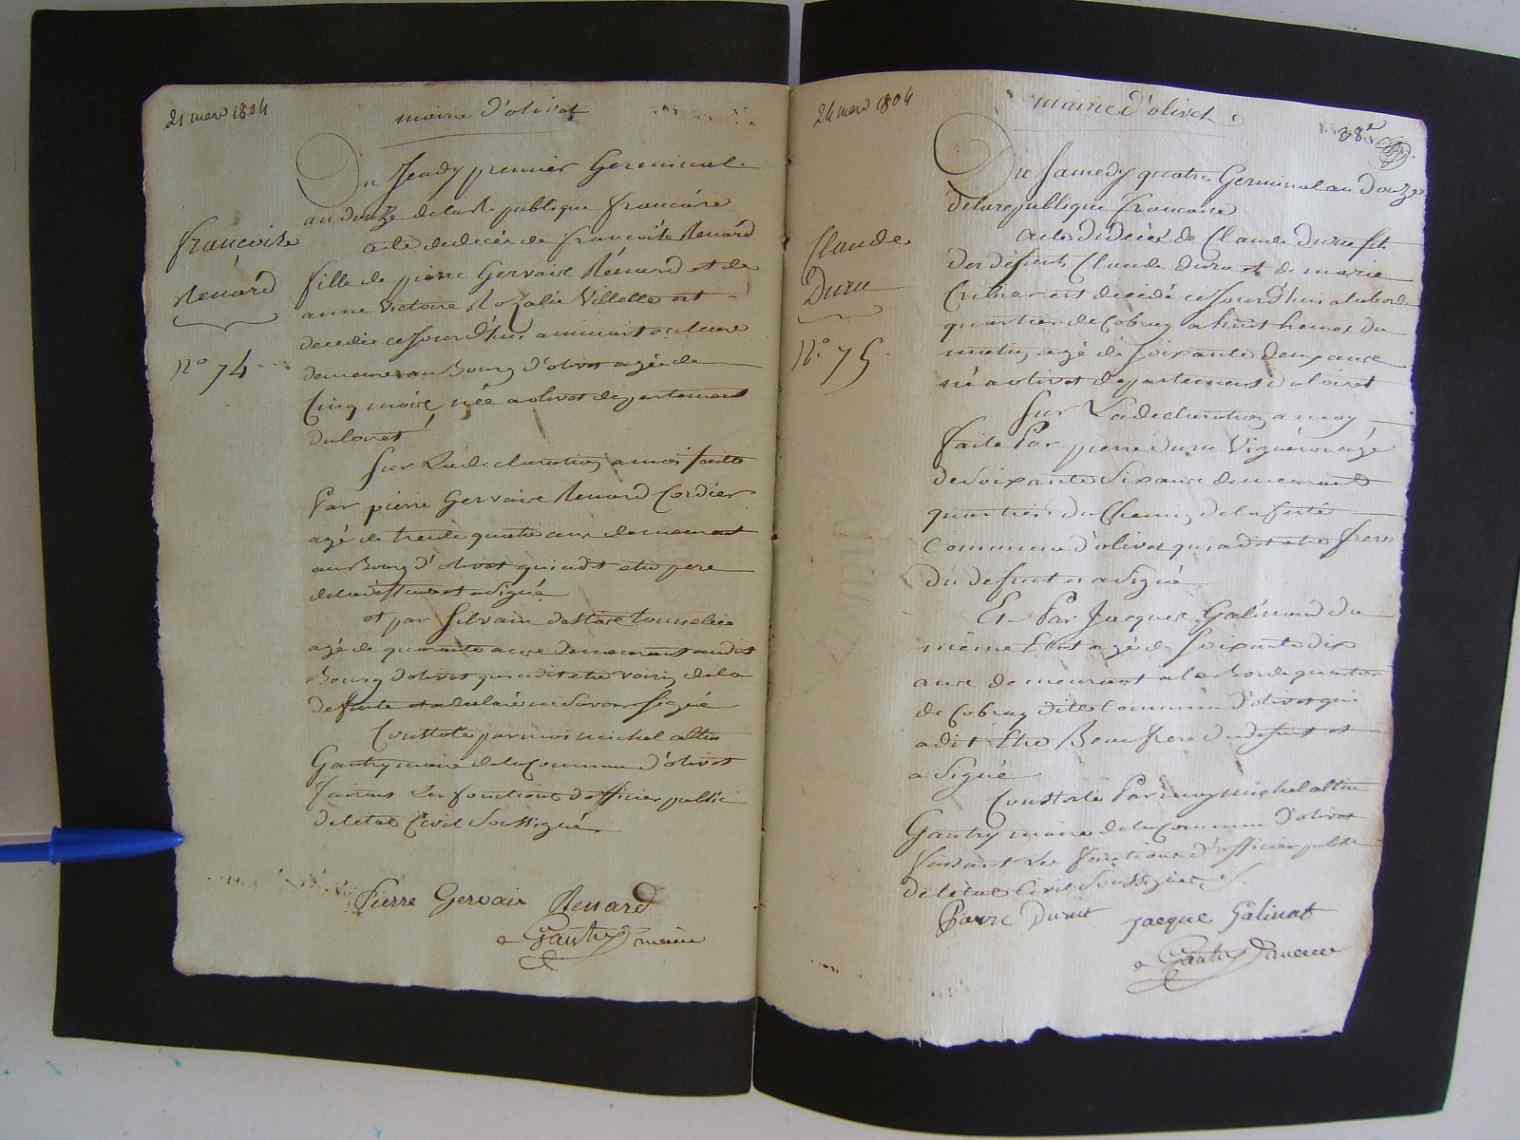 21 mars 1804
mairie d'olivet
Du Jeudy premier Germinal
an douze de la Republique francáise
françoise
Renard
n° 74
acte de decés de françoise Renard
fille de pierre Gervaise Rénard et de
anne Victoire Rozalie Villette est
decedée cejourd'hui a minuit
demeure au Bourg d'olivet agée de
Cinq mois, née a olivet departement
du loiret
Sur La declaration a moi faitte
Par pierre Gervaise Renard Cordier
agé de trente quatre ans demeurant
au Bourg d'olivet qui a dit etre pere
de la defunte et a Signé
et par Silvain tonnelier
agé de quarante ans demeurant audit
Bourg d'olivet qui a dit etre voisin de la
defunte et a declaré ne Savoir Signé
Constaté par moi michel altin
Gautry maire de la Commune d'olivet
faisant Les fonctions d'officier public
de l'etat Civil Soussigné
Pierre Gervais Renard
Gautry maire
24 mars 1804
mairie d'olivet
38e
Du Samedy quatre Germinal an Douze
de la republique francaise
Claude
Duru
N° 75
acte de Decés de Claude Duru fils
des défunts Claude Duru et de marie
est decédé cejourd'hui a la borde
quartier de Cobray a huit heures du
matin agé de Soixante deux ans
né a olivet departement du loiret
Sur La declaration a moy
faite Par pierre Duru Vigneron agé
de Soixante Six ans demeurant
quartier du Chemin de la ferté
Commune d'olivet qui a dit etre frere
du defunt et a Signé
Et Par Jacques Galinand du
même Etat agé de Soixante dix
ans demeurant a la Borde quartier
de Cobray dite Commune d'olivet qui
a dit Etre Beau frere du defunt et
a Signé
Constaté Par moy michel altin
Gautry maire de la Commune d'olivet
faisant Les fonctions d'officier public
de l'etat Civil Soussigné
Pierre Durut jacque Galinat
Gautry maire